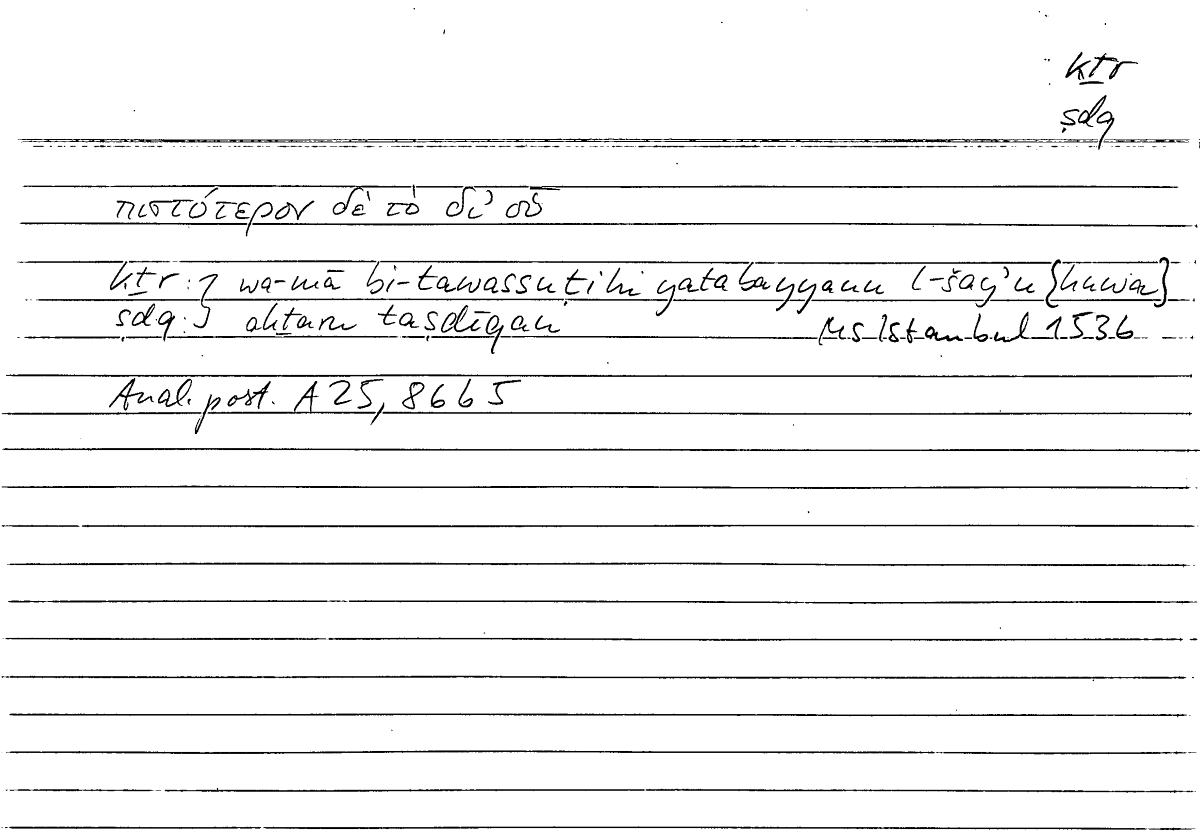 kṯr
ṣdq
πιστότερον δὲ τὸ δι’ οὗ
kṯr:} wa-mā bi-tawassuṭihi yatabayyanu l-šay’u {huwa}
ṣdq:} akṯaru taṣdīqan Ms Istanbul 1536
Anal. post. A 25, 86b5